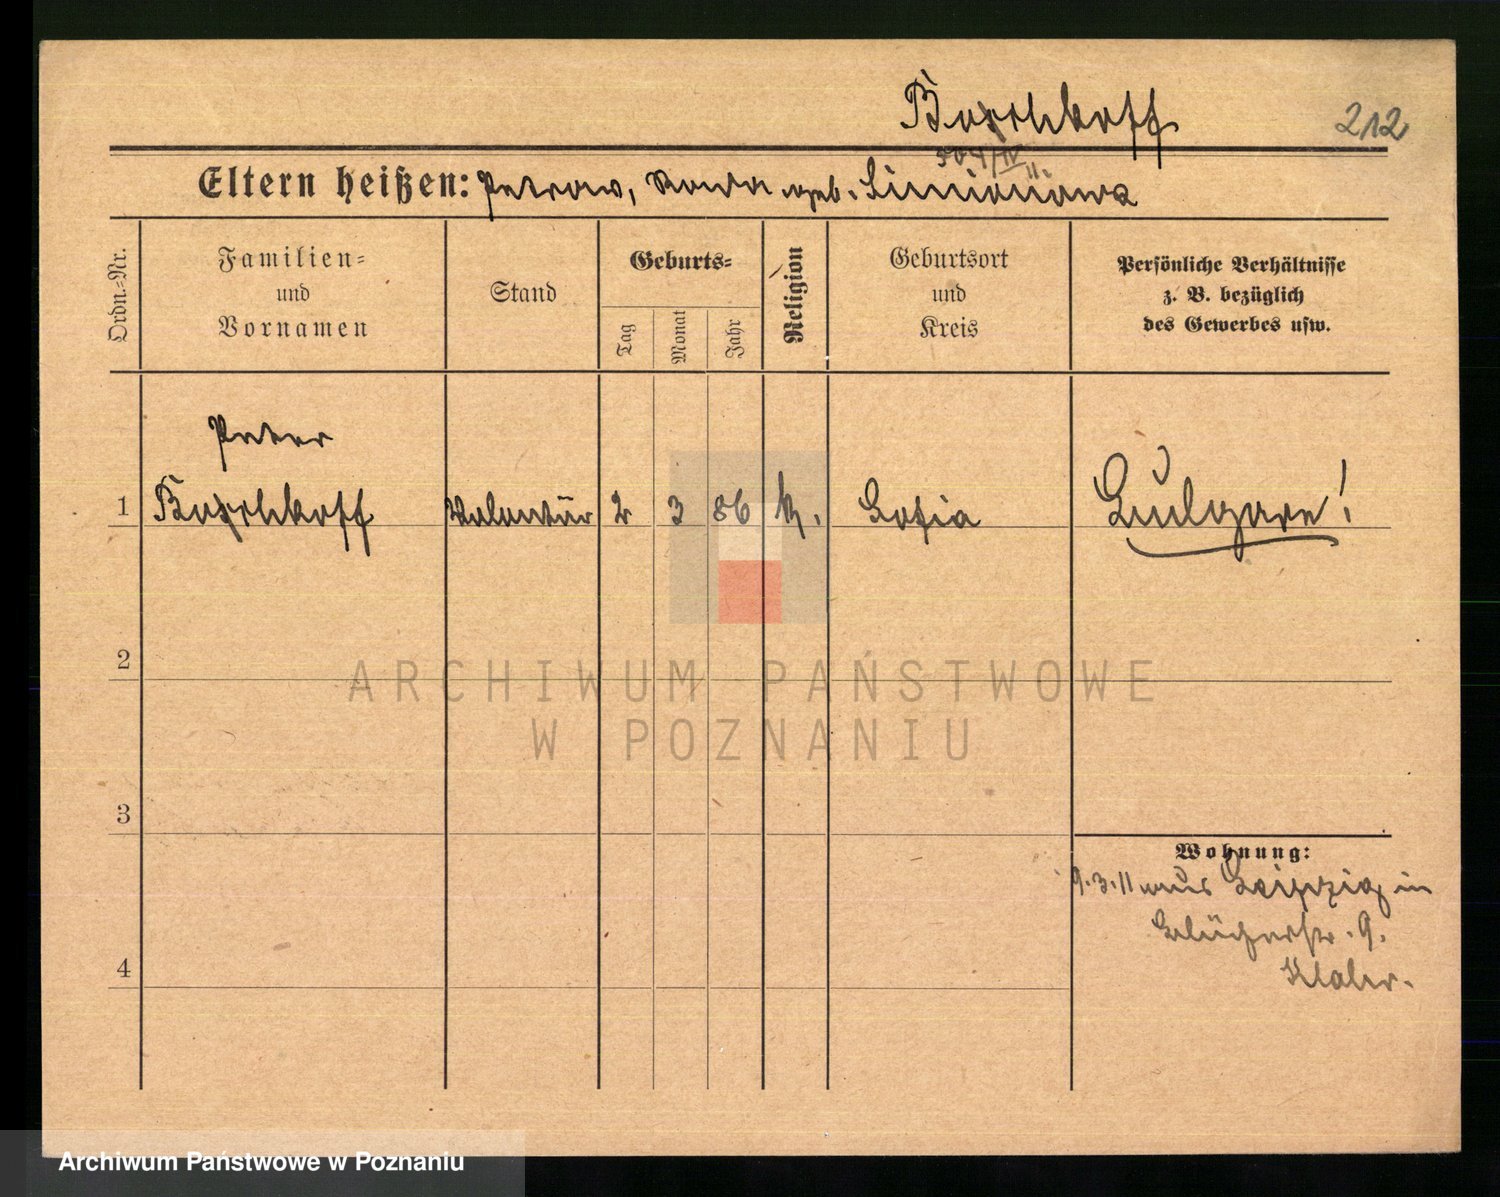 Boschkoff
212
504/IV
11.
Eltern heißen: Petrow, Rowa geb. Simionowa
Ordn.-Nr.
Familien-
und
Vornamen
Stand
Geburts-
Tag
Monat
Jahr
Religion
Geburtsort
und
Kreis
Persönliche Verhältnisse
z. B. bezüglich
des Gewerbes usw.
Peter
1 Boschkoff Volontär 2 3 86 k. Sofia Bulgare!
2
ARCHIWUM PAŃSTWOWE
W POZNANIU
3
Wohnung:
9.3.11 aus Leipzig in
Blücherstr. 9.
4
Archiwum Państwowe w Poznaniu